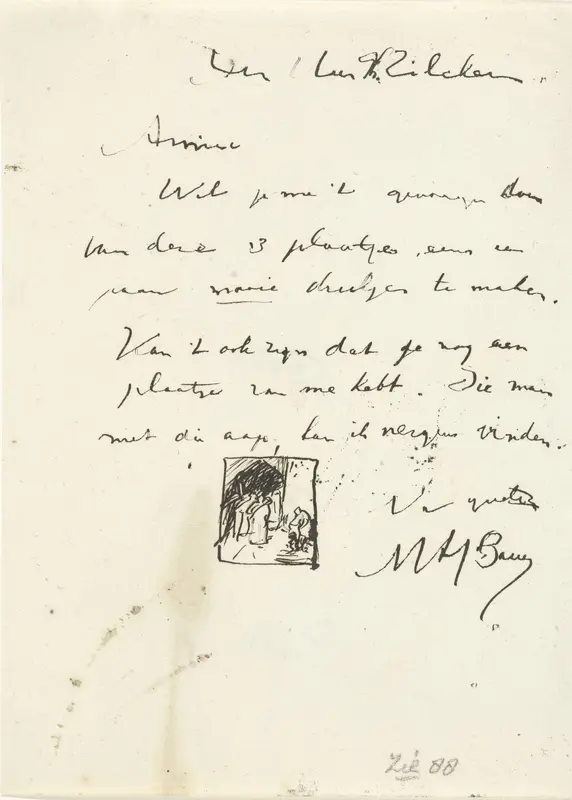 Den Heer Ph. Zilcken.
Amice
Wil je me 't genoegen doen
van deze 3 plaatjes eens een
paar mooie drukjes te maken.
Kan 't ook zijn dat je nog een
plaatje van me hebt. Die man
met die aap, kan ik nergens vinden.
M A J Bauer
Zie 88